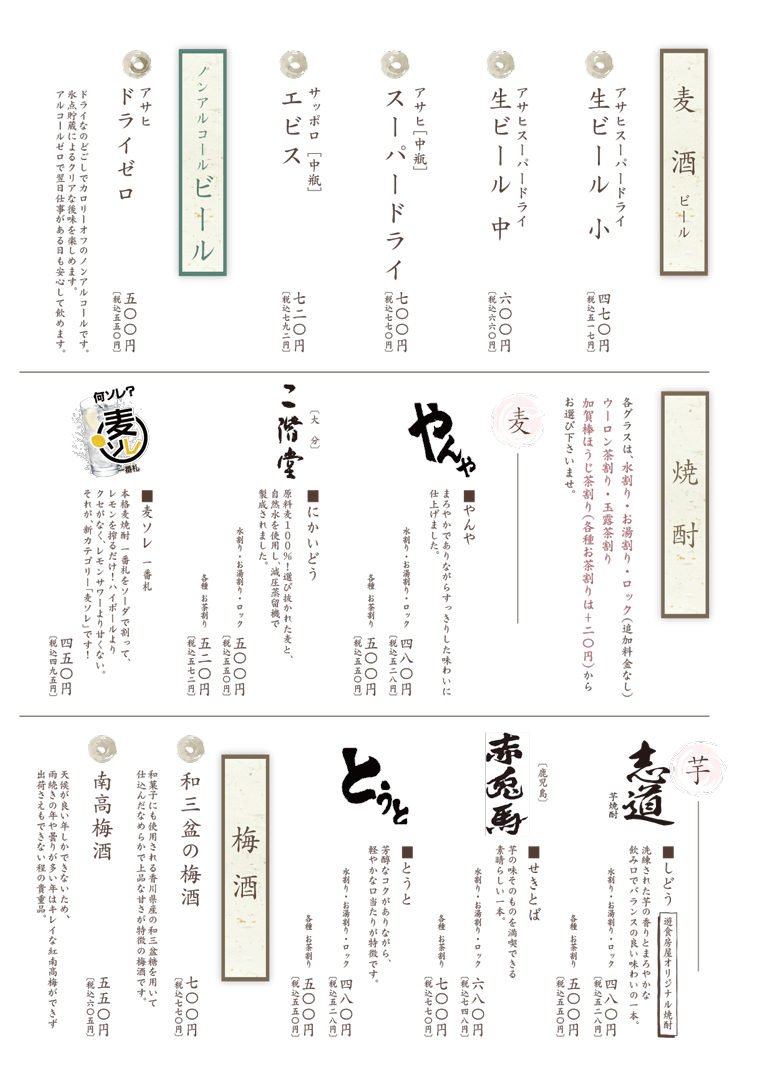 麦酒 ビール
アサヒスーパードライ
生ビール 小
四七〇円
[税込五一七円]
アサヒスーパードライ
生ビール 中
六〇〇円
[税込六六〇円]
アサヒ[中瓶]
スーパードライ
七〇〇円
[税込七七〇円]
サッポロ[中瓶]
エビス
七二〇円
[税込七九二円]
ノンアルコールビール
アサヒ
ドライゼロ
五〇〇円
[税込五五〇円]
ドライなのどごしでカロリーオフのノンアルコールです。
氷点貯蔵によるクリアな後味を楽しめます。
アルコールゼロで翌日仕事がある日も安心して飲めます。
焼酎
各グラスは、水割り・お湯割り・ロック(追加料金なし)
ウーロン茶割り・玉露茶割り
加賀棒ほうじ茶割り(各種お茶割りは+二〇円)から
お選び下さいませ。
麦
やんや
■やんや
まろやかでありながらすっきりした味わいに
仕上げました。
水割り・お湯割り・ロック 四八〇円
[税込五二八円]
各種 お茶割り 五〇〇円
[税込五五〇円]
[大分]
二階堂
■にかいどう
原料麦100%!選び抜かれた麦と、
自然水を使用し、減圧蒸留機で
製成されました。
水割り・お湯割り・ロック 五〇〇円
[税込五五〇円]
各種 お茶割り 五二〇円
[税込五七二円]
何ソレ?
麦ソレ
一番札
■麦ソレ 一番札
本格麦焼酎 一番札をソーダで割って、
レモンを搾るだけ!ハイボールより
クセがなく、レモンサワーより甘くない。
それが、新カテゴリー「麦ソレ」です!
四五〇円
[税込四九五円]
芋
志道
芋焼酎
■しどう 遊食房屋オリジナル焼酎
洗練された芋の香りとまろやかな
飲み口でバランスの良い味わいの一本。
水割り・お湯割り・ロック 四八〇円
[税込五二八円]
各種 お茶割り 五〇〇円
[税込五五〇円]
[鹿児島]
赤兎馬
■せきとば
芋の味そのものを満喫できる
素晴らしい一本。
水割り・お湯割り・ロック 六八〇円
[税込七四八円]
各種 お茶割り 七〇〇円
[税込七七〇円]
とうと
■とうと
芳醇なコクがありながら、
軽やかな口当たりが特徴です。
水割り・お湯割り・ロック 四八〇円
[税込五二八円]
各種 お茶割り 五〇〇円
[税込五五〇円]
梅酒
和三盆の梅酒
七〇〇円
[税込七七〇円]
和菓子にも使用される香川県産の和三盆糖を用いて
仕込んだなめらかで上品な甘さが特徴の梅酒です。
南高梅酒
五五〇円
[税込六〇五円]
天候が良い年しかできないため、
雨続きの年や曇りが多い年はキレイな紅南高梅ができず
出荷さえもできない程の貴重品。